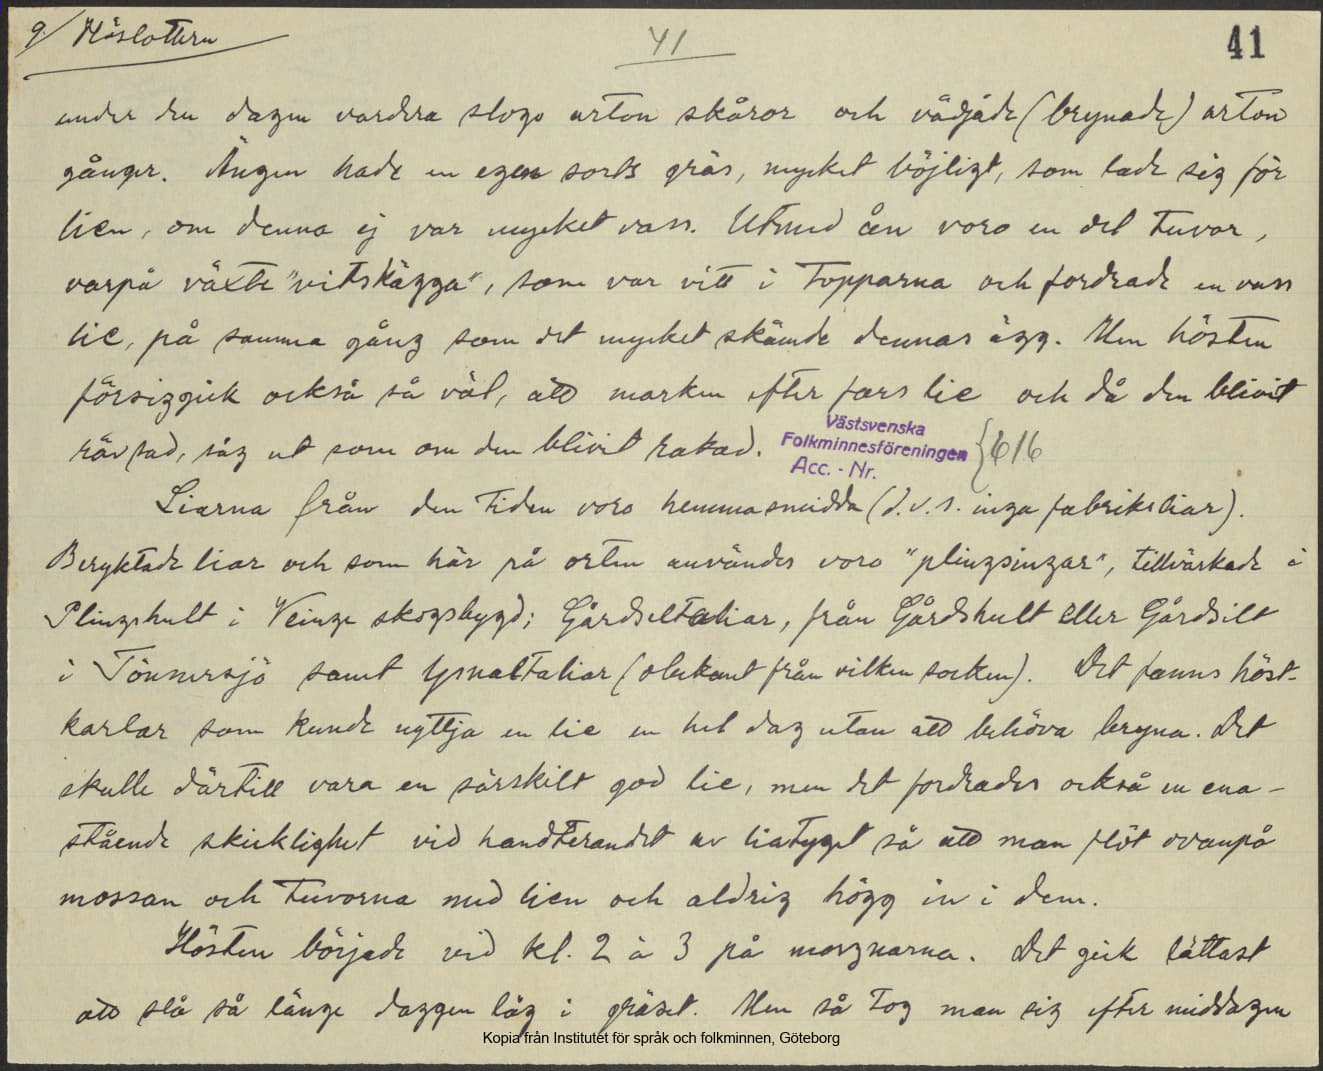 9/ Höslottern
41
41
under den dagen vardera slogo arton skåror och vädjade (brynade) arton
gånger. Ängen hade en egen sorts gräs, mycket böjligt, som lade sig för
lien, om denna ej var mycket vass. Utmed ån voro en del tuvor,
varpå växte "vitskägga", som var vitt i topparna och fordrade en vass
lie, på samma gång som det mycket skämde dennas ägg. Men hösten
försiggick också så väl, att marken efter fars lie och då den blivit
rävsad, såg ut som om den blivit rakad.
Västsvenska
Folkminnesföreningen
Acc. - Nr.
616
Liarna från den tiden voro hemmasmidda (d.v.s. inga fabriksliar).
Beryktade liar och som här på orten användes voro "plingsingar", tillvärkade i
Plingshult i Veinge skogsbygd; Gårdseltaliar, från Gårdshult eller Gårdsilt
i Tönnersjö samt Ysnaltaliar (obekant från vilken socken). Det fanns höst-
karlar som kunde nyttja en lie en hel dag utan att behöva bryna. Det
skulle därtill vara en särskilt god lie, men det fordrades också en ena-
stående skicklighet vid handterandet av liatyget så att man flöt ovanpå
mossan och tuvorna med lien och aldrig högg in i dem.
Hösten började vid kl. 2 à 3 på morgnarna. Det gick lättast
att slå så länge daggen låg i gräset. Men så tog man sig efter middagen
Kopia från Institutet för språk och folkminnen, Göteborg